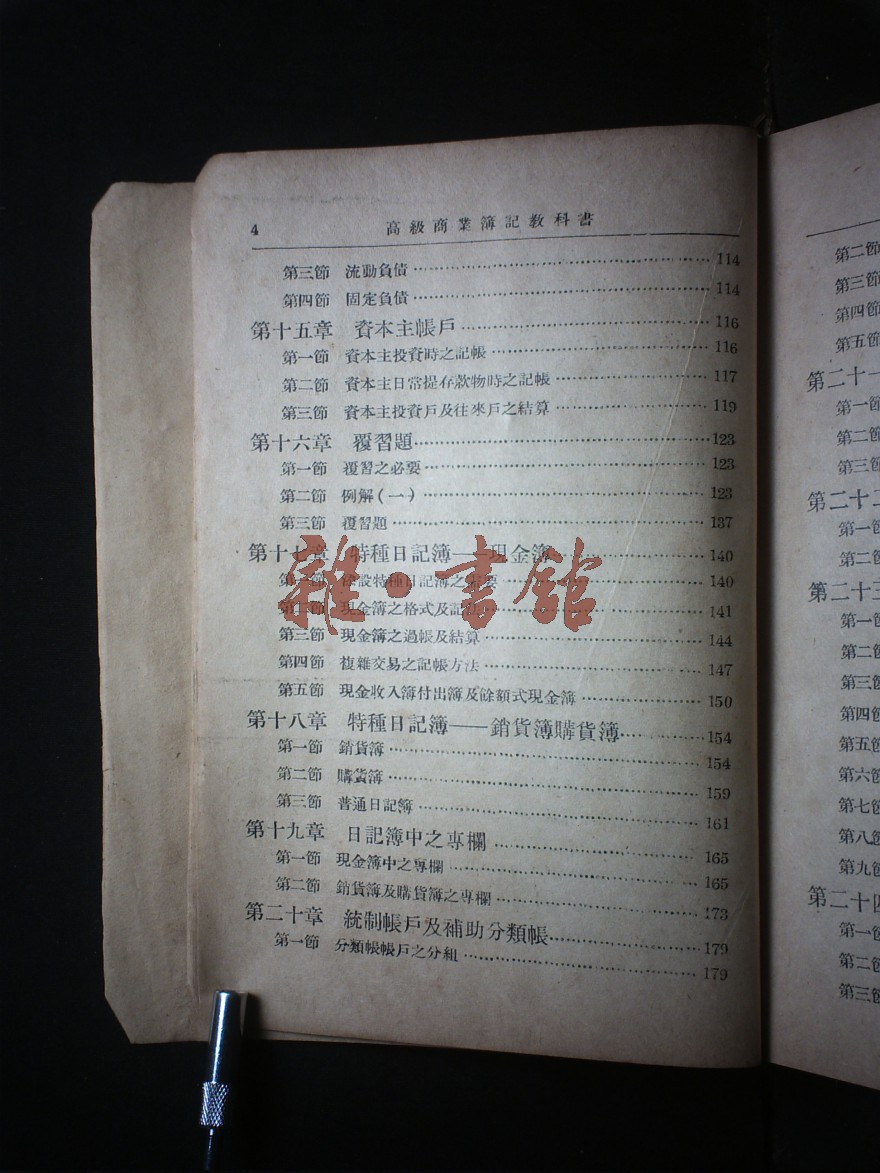 4 高級商業簿記教科書
第三節 流動負債 114
第四節 固定負債 114
第十五章 資本主帳戶 116
第一節 資本主投資時之記帳 116
第二節 資本主日常提存款物時之記帳 117
第三節 資本主投資戶及往來戶之結算 119
第十六章 覆習題 123
第一節 覆習之必要 123
第二節 例解(一) 123
第三節 覆習題 137
第十七章 特種日記簿——現金簿 140
第一節 設特種日記簿之需要 140
第二節 現金簿之格式及記法 141
第三節 現金簿之過帳及結算 144
第四節 複雜交易之記帳方法 147
第五節 現金收入簿付出簿及餘額式現金簿 150
第十八章 特種日記簿——銷貨簿購貨簿 154
第一節 銷貨簿 154
第二節 購貨簿 159
第三節 普通日記簿 161
第十九章 日記簿中之專欄 165
第一節 現金簿中之專欄 165
第二節 銷貨簿及購貨簿之專欄 173
第二十章 統制帳戶及補助分類帳 179
第一節 分類帳帳戶之分組 179
雜·書館
第二節
第三節
第四節
第五節
第二十一
第一節
第二節
第三節
第二十二
第一節
第二節
第二十三
第一節
第二節
第三節
第四節
第五節
第六節
第七節
第八節
第九節
第二十四
第一節
第二節
第三節